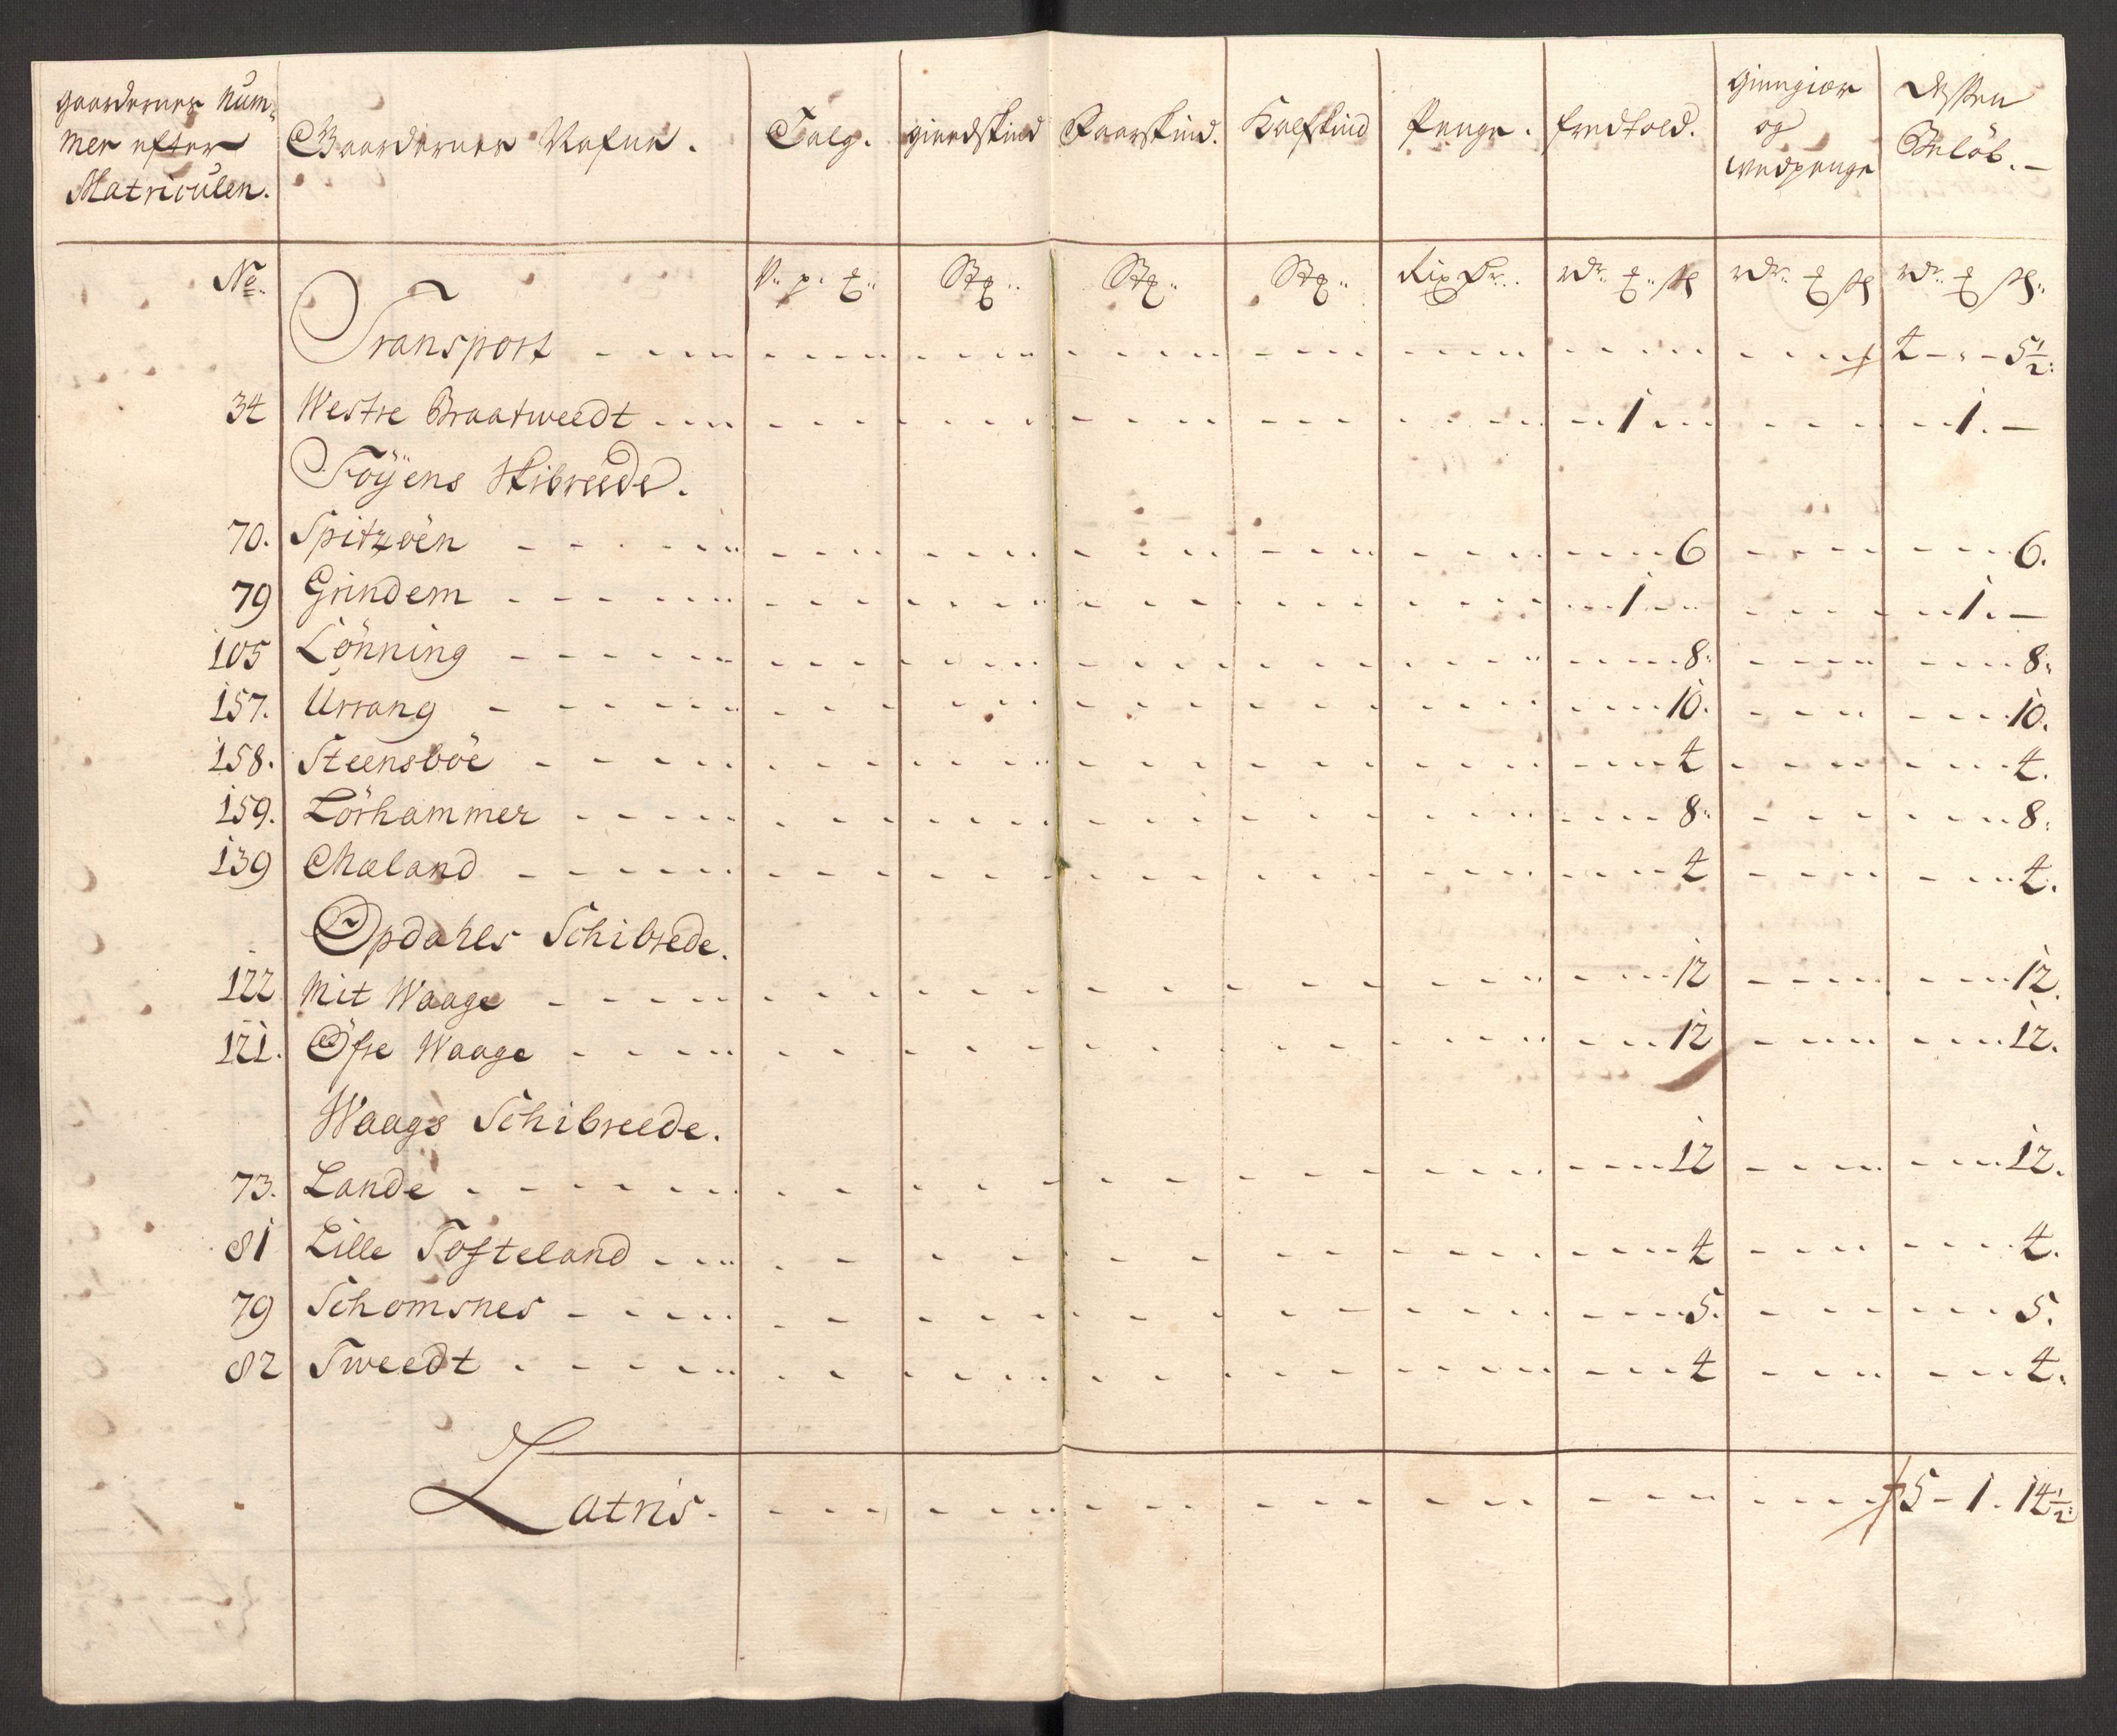 gaardernes Num-
mer efter
Matriculen.
Gaardernes Nafne.
Talg.
gieedskind
Faarskind.
Kalfskind
Penge.
fredtold.
giengier
og
wedpenge
Dessen
Beløb. –
No.
Transport - - - - 4 - " - 5 1/2:
34 Westre Braatweedt - - - 1 - - - 1. –
Föÿens Skibreede.
70. Spitzöen - - - 6 - - - 6.
79 Grindem - - - 1 - - - 1. –
105 Lönning - - - 8: - - - 8:
157. Urrang - - - 10. - - - 10.
158. Steensböe - - - 4 - - - 4.
159. Lörhammer - - - 8: - - - 8:
139 Mæland - - - 4 - - - 4.
Opdahls Schibrede.
122 Mit Waage - - - 12 - - - 12.
121. Öfre Waage - - - 12 - - - 12.
Waags Schibreede.
73. Lande - - - 12 - - - 12.
81 Lille Tofteland - - - 4 - - - 4.
79 Schomsnes - - - 5. - - - 5.
82 Tweedt - - - 4 - - - 4.
Latris. - - - 5 - 1. 14 1/2: